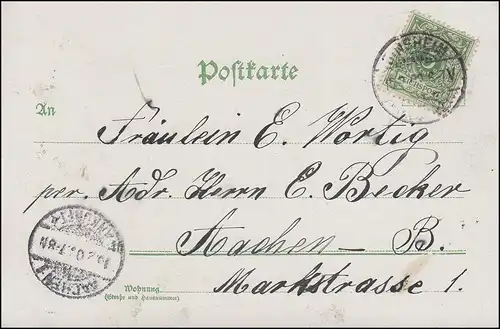 Postkarte
An
Fräulein E. Wortig
per. Adr. Herrn E. Becker
Aachen – B.
Markstrasse 1.
Wohnung
(Straße und Hausnummer)
AACHEN 1